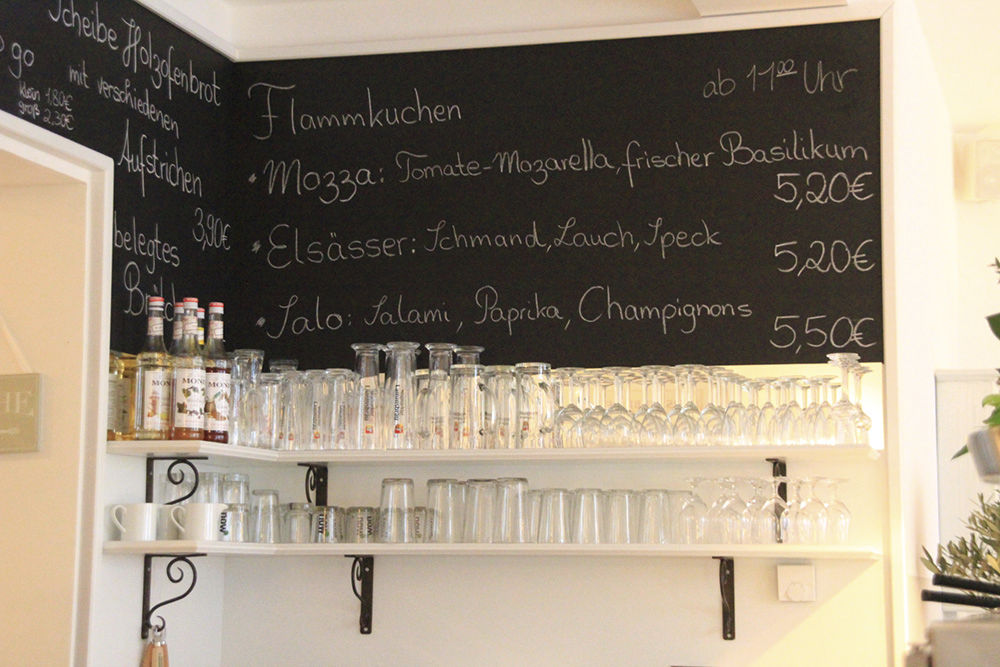 Scheibe Holzofenbrot
mit verschiedenen
Aufstrichen
3,90€
belegtes
go
klein 1,80€
groß 2,30€
Flammkuchen ab 11⁰⁰ Uhr
Mozza: Tomate-Mozarella, frischer Basilikum
5,20€
Elsässer: Schmand, Lauch, Speck
5,20€
Salo: Salami, Paprika, Champignons
5,50€
now